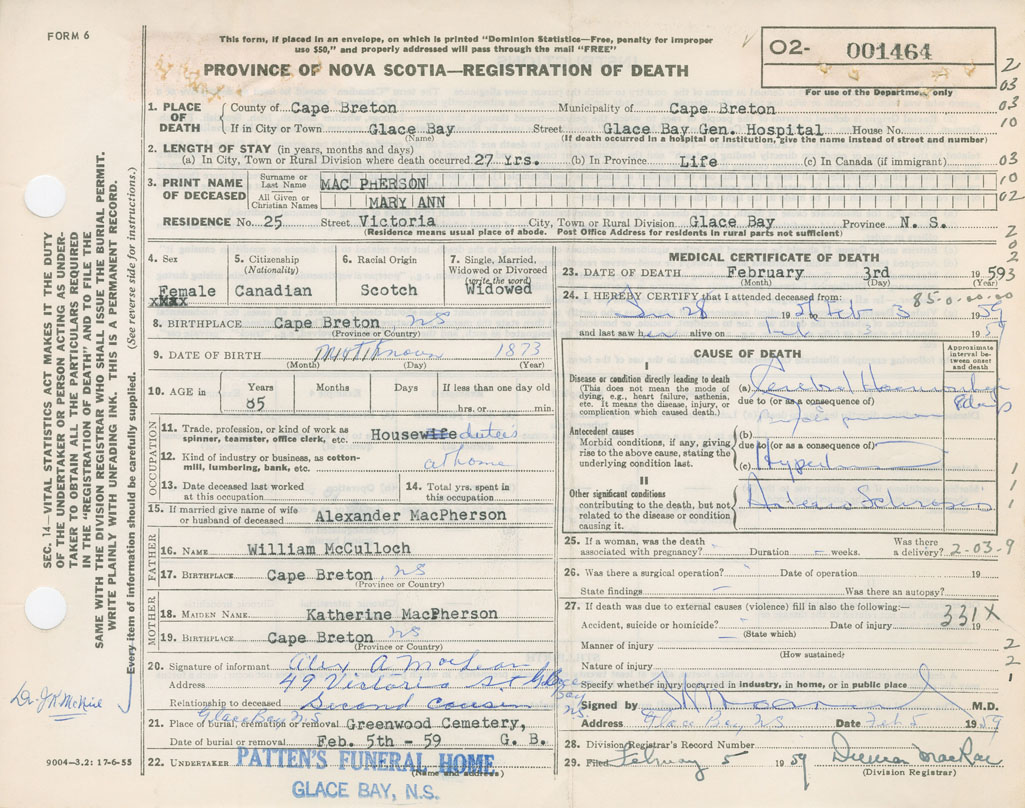 FORM 6
This form, if placed in an envelope, on which is printed "Dominion Statistics—Free, penalty for improper
use $50," and properly addressed will pass through the mail "FREE"
PROVINCE OF NOVA SCOTIA—REGISTRATION OF DEATH
O2- 001464
For use of the Department only
2
03
03
10
03
10
02
2
0
2
SEC. 14—VITAL STATISTICS ACT MAKES IT THE DUTY
OF THE UNDERTAKER OR PERSON ACTING AS UNDER-
TAKER TO OBTAIN ALL THE PARTICULARS REQUIRED
IN THE "REGISTRATION OF DEATH" AND TO FILE THE
SAME WITH THE DIVISION REGISTRAR WHO SHALL ISSUE THE BURIAL PERMIT.
WRITE PLAINLY WITH UNFADING INK. THIS IS A PERMANENT RECORD.
Every item of information should be carefully supplied. (See reverse side for instructions.)
1. PLACE OF DEATH
County of Cape Breton Municipality of Cape Breton
If in City or Town Glace Bay Street Glace Bay Gen. Hospital House No.
(Name) (If death occurred in a hospital or institution, give the name instead of street and number)
2. LENGTH OF STAY (in years, months and days)
(a) In City, Town or Rural Division where death occurred 27 Yrs. (b) In Province Life (c) In Canada (if immigrant)
3. PRINT NAME OF DECEASED
Surname or Last Name MAC PHERSON
All Given or Christian Names MARY ANN
RESIDENCE No. 25 Street Victoria City, Town or Rural Division Glace Bay Province N. S.
(Residence means usual place of abode. Post Office Address for residents in rural parts not sufficient)
4. Sex
Female
5. Citizenship
(Nationality)
Canadian
6. Racial Origin
Scotch
7. Single, Married,
Widowed or Divorced
(write the word)
Widowed
8. BIRTHPLACE Cape Breton NS
(Province or Country)
9. DATE OF BIRTH Not Known 1873
(Month) (Day) (Year)
10. AGE in Years Months Days If less than one day old
85 hrs. or min.
OCCUPATION
11. Trade, profession, or kind of work as
spinner, teamster, office clerk, etc. Housewife duties
12. Kind of industry or business, as cotton-
mill, lumbering, bank, etc. at home
13. Date deceased last worked
at this occupation
14. Total yrs. spent in
this occupation
15. If married give name of wife
or husband of deceased Alexander MacPherson
FATHER
16. NAME William McCulloch
17. BIRTHPLACE Cape Breton, NS
(Province or Country)
MOTHER
18. MAIDEN NAME Katherine MacPherson
19. BIRTHPLACE Cape Breton NS
(Province or Country)
20. Signature of informant Alex A MacLean
Address 49 Victoria St Glace
Bay
NS.
Relationship to deceased Second cousin
Glace Bay N.S
21. Place of burial, cremation or removal Greenwood Cemetery,
Date of burial or removal Feb. 5th - 59 G. B.
22. UNDERTAKER PATTEN'S FUNERAL HOME
(Name and address)
GLACE BAY, N.S.
9004—3.2: 17-6-55
MEDICAL CERTIFICATE OF DEATH
23. DATE OF DEATH February 3rd 1959 3
(Month) (Day) (Year)
85-0-00-00
24. I HEREBY CERTIFY that I attended deceased from:
Jan 28 1959 Feb 3 1959
and last saw her alive on Feb 3 1959
CAUSE OF DEATH
Approximate
interval be-
tween onset
and death
I
Disease or condition directly leading to death
(This does not mean the mode of
dying, e.g., heart failure, asthenia,
etc. It means the disease, injury, or
complication which caused death.)
(a) Cerebral Hemorrhage
8 days
due to (or as a consequence of)
Antecedent causes
Morbid conditions, if any, giving
rise to the above cause, stating the
underlying condition last.
(b)
due to (or as a consequence of)
(c)
II
Other significant conditions
contributing to the death, but not
related to the disease or condition
causing it.
Arterio Sclerosis
1
1
1
25. If a woman, was the death
associated with pregnancy? - Duration - weeks. Was there
a delivery? 2-03-9
26. Was there a surgical operation? - Date of operation 19
State findings - Was there an autopsy?
27. If death was due to external causes (violence) fill in also the following:—
331X
Accident, suicide or homicide? - Date of injury 19
(State which)
Manner of injury
(How sustained)
Nature of injury
2
2
1
Specify whether injury occurred in industry, in home, or in public place
Signed by M.D.
Address Glace Bay, NS Date Feb 5 1959
28. Division Registrar's Record Number
29. Filed February 5 1959 Duncan MacRae
(Division Registrar)